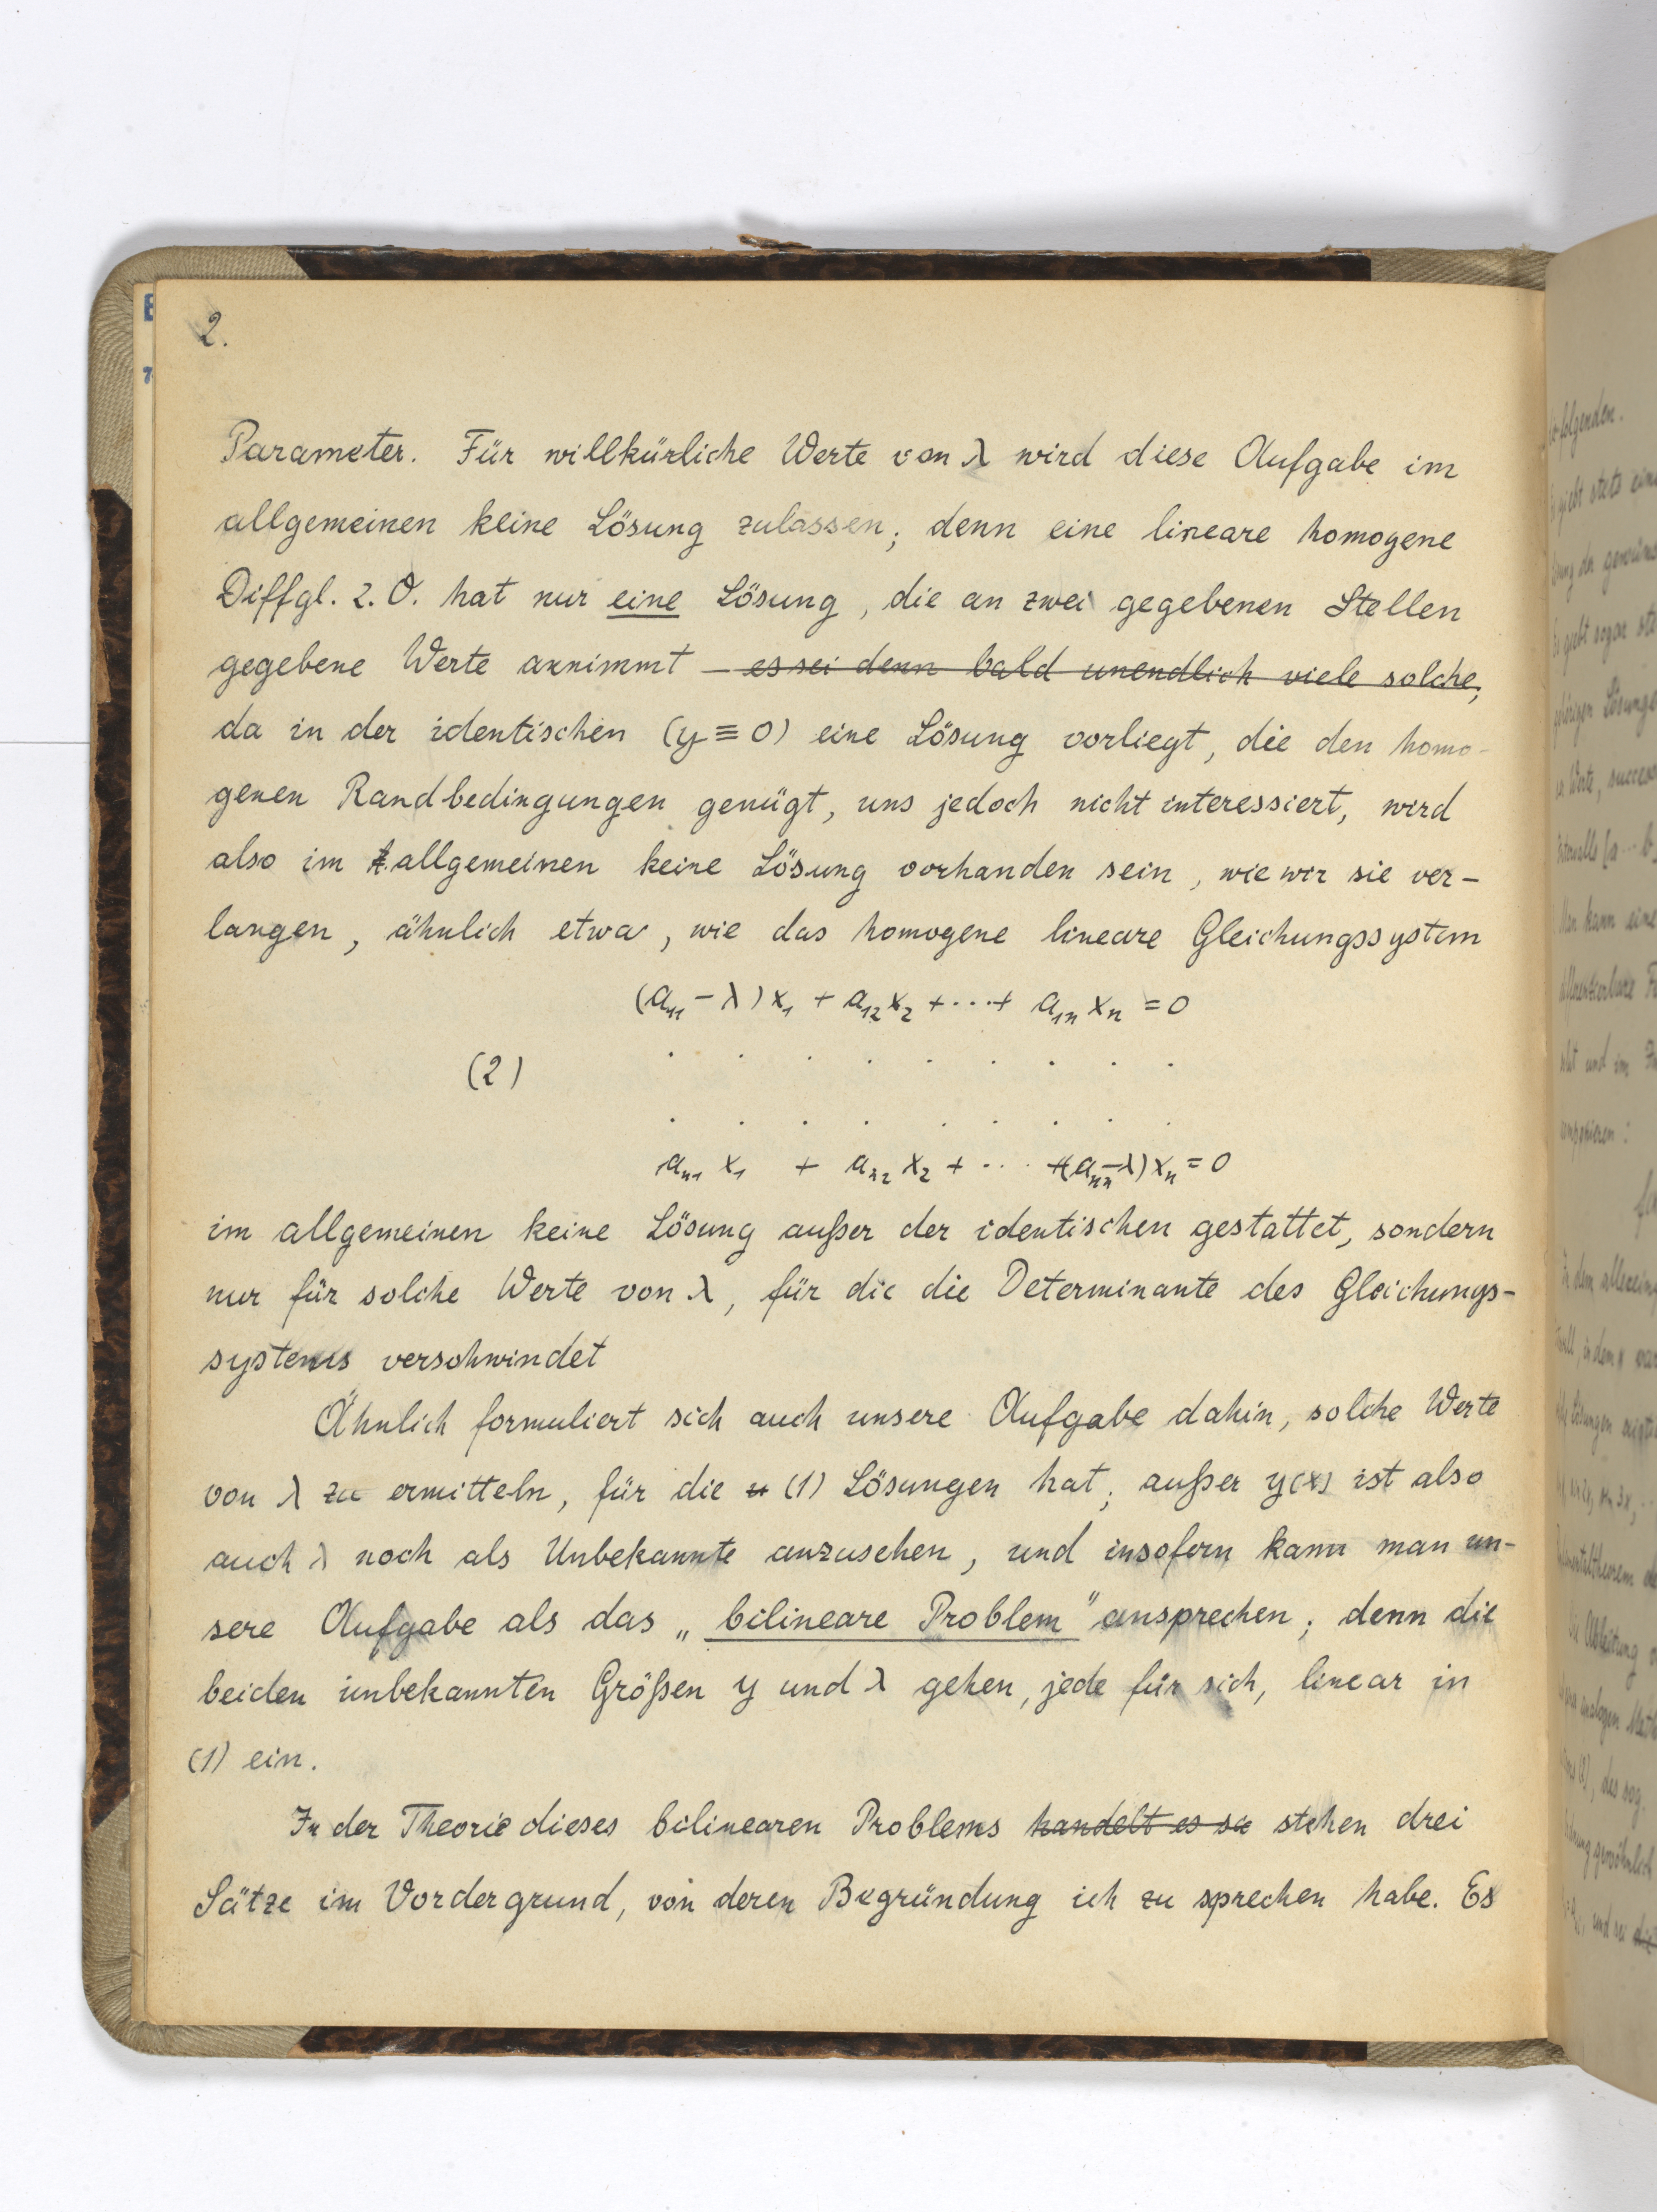 2.
Parameter. Für willkürliche Werte von λ wird diese Aufgabe im
allgemeinen keine Lösung zulassen; denn eine lineare homogene
Diffgl. 2. O. hat nur eine Lösung, die an zwei gegebenen Stellen
gegebene Werte annimmt – es sei denn bald unendlich viele solche,
da in der identischen (y ≡ 0) eine Lösung vorliegt, die den homo-
genen Randbedingungen genügt, uns jedoch nicht interessiert, wird
also im allgemeinen keine Lösung vorhanden sein, wie wir sie ver-
langen, ähnlich etwa, wie das homogene lineare Gleichungssystem
(a₁₁ – λ) x₁ + a₁₂ x₂ + ··· + a₁ₙ xₙ = 0
(2) . . . . . . . . .
. . . . . . . . .
aₙ₁ x₁ + aₙ₂ x₂ + ··· +(aₙₙ–λ) xₙ = 0
im allgemeinen keine Lösung außer der identischen gestattet, sondern
nur für solche Werte von λ, für die die Determinante des Gleichungs-
systems verschwindet
Ähnlich formuliert sich auch unsere Aufgabe dahin, solche Werte
von λ zu ermitteln, für die u (1) Lösungen hat; außer y(x) ist also
auch λ noch als Unbekannte anzusehen, und insofern kann man un-
sere Aufgabe als das „bilineare Problem" ansprechen; denn die
beiden unbekannten Größen y und λ gehen, jede für sich, linear in
(1) ein.
In der Theorie dieses bilinearen Problems handelt es su stehen drei
Sätze im Vordergrund, von deren Begründung ich zu sprechen habe. Es